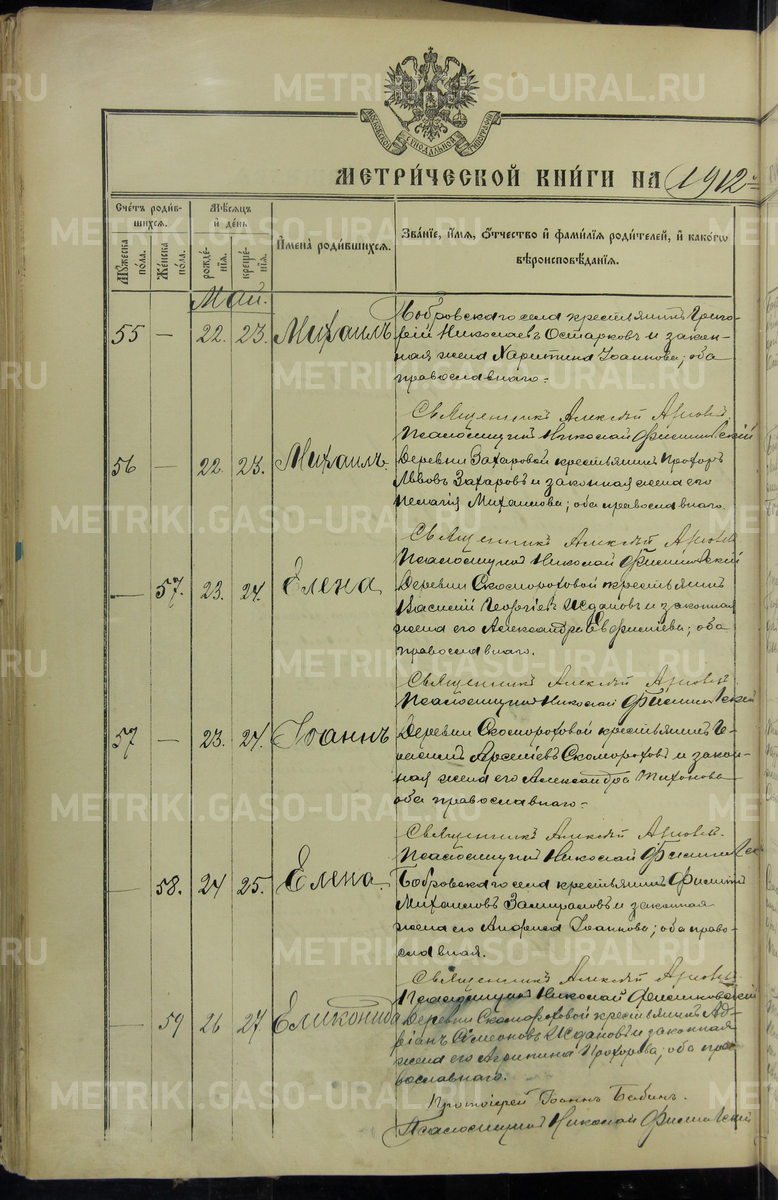 МОСКОВСКОЙ СѴНОДАЛЬНОЙ ТИПОГРАФІИ
МЕТРИ́ЧЕСКОЙ КНИ́ГИ НА 1912
Сче́тъ роди́в-
шихся.
Мꙋжеска по́ла.
Же́нска по́ла.
Мѣ́сяцъ
и҆ де́нь
рожде́нїѧ.
креще́нїѧ.
И҆мена̀ роди́вшихся.
Зва́нїе, и҆́мѧ, ѻ҆́тчество и҆ фами́лїѧ роди́телей, и҆ како́гѡ
вѣроисповѣ́данїѧ.
Май.
55 — 22. 23. Михаилъ
Бобровскаго села крестьянинъ Григо-
рій Николаевъ Остарковъ и закон-
ная жена Іоаннова; оба
православнаго.
Священникъ Алексѣй
Псаломщикъ Николай
56 — 22. 23. Михаилъ.
Деревни Захаровой крестьянинъ Прохоръ
Львовъ Захаровъ и законная жена его
Пелагія Михаилова; оба православнаго.
Священникъ Алексѣй
Псаломщикъ Николай
— 57. 23. 24. Елена
Деревни Скомороховой крестьянинъ
Василій Георгіевъ Ждановъ и законная
жена его Александра; оба
православнаго.
Священникъ Алексѣй
Псаломщикъ Николай
57 — 23. 24. Іоаннъ
Деревни Скомороховой крестьянинъ Ге-
расимъ Арсеніевъ Скомороховъ и закон-
ная жена его Александра Тихонова
оба православнаго.
Священникъ Алексѣй
Псаломщикъ Николай
— 58. 24 25. Елена
Бобровскаго села крестьянинъ Филиппъ
Михаиловъ и законная
жена его Анфиса Іоаннова; оба право-
славная.
Священникъ Алексѣй
Псаломщикъ Николай
— 59 26 27 Еликонида
Деревни Скомороховой крестьянинъ Ад-
ріанъ Симеоновъ Ждановъ и законная
жена его Агрипина Прохорова; оба пра-
вославнаго.
Протоіерей Іоаннъ Бабинъ.
Псаломщикъ Николай
METRIKI.GASO-URAL.RU